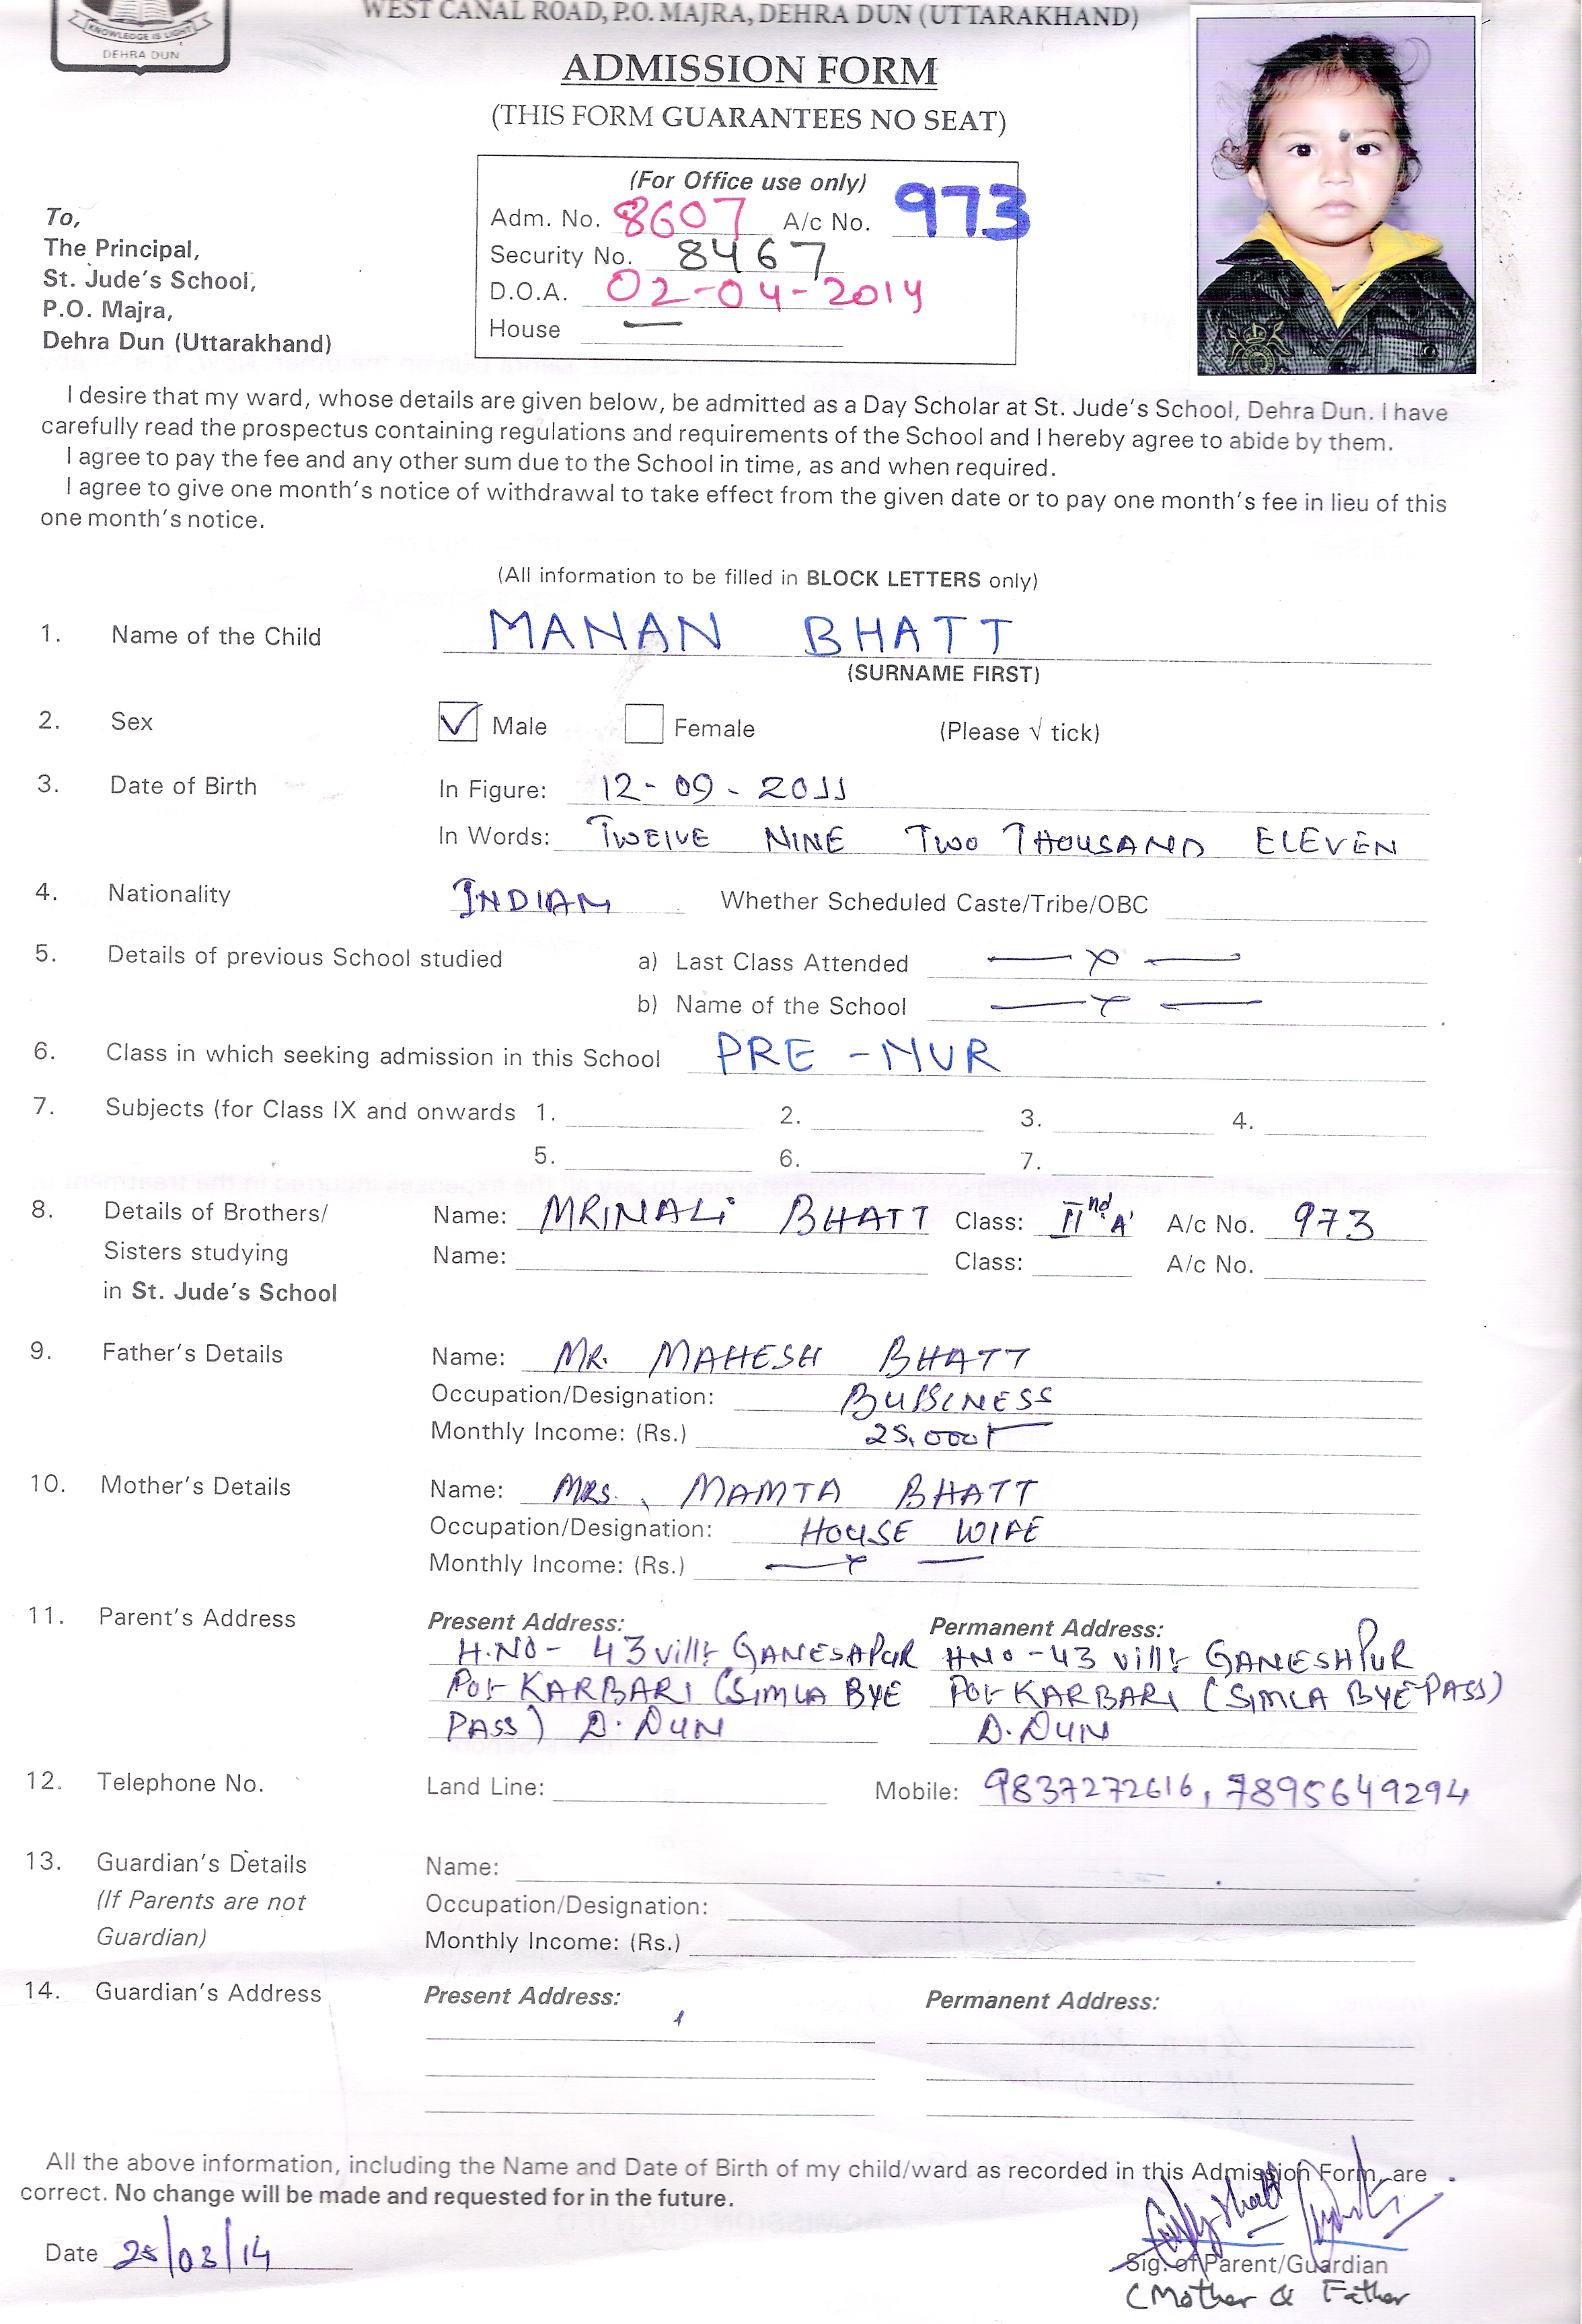 KNOWLEDGE IS LIGHT
DEHRA DUN
WEST CANAL ROAD, P.O. MAJRA, DEHRA DUN (UTTARAKHAND)
ADMISSION FORM
(THIS FORM GUARANTEES NO SEAT)
(For Office use only)
Adm. No. 8607 A/c No. 973
Security No. 8467
D.O.A. 02-04-2014
House —
To,
The Principal,
St. Jude's School,
P.O. Majra,
Dehra Dun (Uttarakhand)
I desire that my ward, whose details are given below, be admitted as a Day Scholar at St. Jude's School, Dehra Dun. I have
carefully read the prospectus containing regulations and requirements of the School and I hereby agree to abide by them.
I agree to pay the fee and any other sum due to the School in time, as and when required.
I agree to give one month's notice of withdrawal to take effect from the given date or to pay one month's fee in lieu of this
one month's notice.
(All information to be filled in BLOCK LETTERS only)
1. Name of the Child MANAN BHATT
(SURNAME FIRST)
2. Sex ✓ Male Female (Please √ tick)
3. Date of Birth In Figure: 12-09-2011
In Words: TWELVE NINE TWO THOUSAND ELEVEN
4. Nationality INDIAN Whether Scheduled Caste/Tribe/OBC
5. Details of previous School studied a) Last Class Attended — x —
b) Name of the School — x —
6. Class in which seeking admission in this School PRE-NUR
7. Subjects (for Class IX and onwards 1. 2. 3. 4.
5. 6. 7.
8. Details of Brothers/ Name: MRINALi BHATT Class: IInd 'A' A/c No. 973
Sisters studying Name: Class: A/c No.
in St. Jude's School
9. Father's Details Name: MR. MAHESH BHATT
Occupation/Designation: BUSSINESS
Monthly Income: (Rs.) 25,000/-
10. Mother's Details Name: MRS. MAMTA BHATT
Occupation/Designation: HOUSE WIFE
Monthly Income: (Rs.) — x —
11. Parent's Address Present Address: Permanent Address:
H.NO- 43 vill:- GANESAPUR HNO-43 vill:- GANESHPUR
PO:- KARBARI (SIMLA BYE PO:- KARBARI (SIMLA BYE PASS)
PASS) D.DUN D.DUN
12. Telephone No. Land Line: Mobile: 9837272616, 7895649294
13. Guardian's Details Name:
(If Parents are not Occupation/Designation:
Guardian) Monthly Income: (Rs.)
14. Guardian's Address Present Address: Permanent Address:
All the above information, including the Name and Date of Birth of my child/ward as recorded in this Admission Form, are
correct. No change will be made and requested for in the future.
Date 25/03/14
Sig. of Parent/Guardian
(Mother & Father